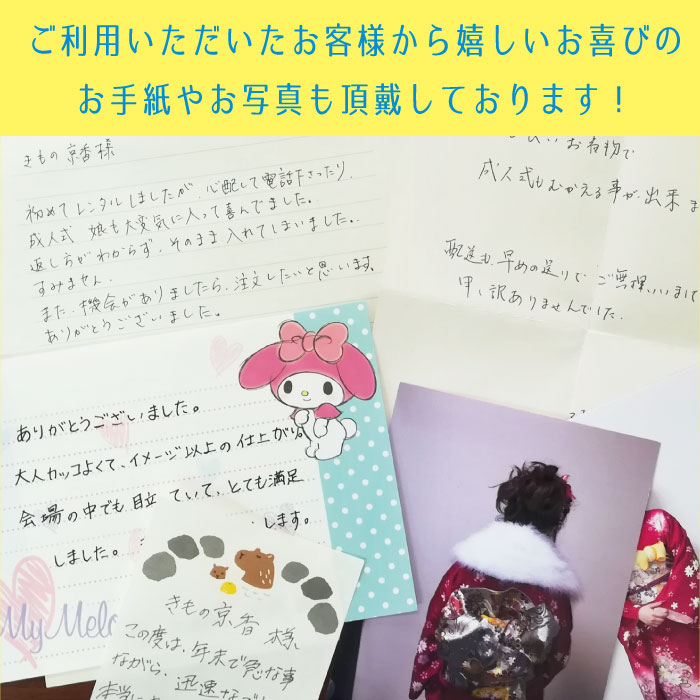 ご利用いただいたお客様から嬉しいお喜びの
お手紙やお写真も頂戴しております！
きもの 京香様
初めてレンタルしましたが、心配して電話下さったり、
成人式 娘も大変気に入って喜んでました。
返し方がわからず、そのまま入れてしまいました。
すみません。
また、機会がありましたら、注文したいと思います。
ありがとうございました。
お着物で
成人式もむかえる事が出来ま
配送も、早めの送りで ご無理いいまして
申し訳ありませんでした。
ありがとうございました。
大人カッコよくて、イメージ以上の仕上がり。
会場の中でも目立 ていて、とても満足
しました。 します。
My Melo
きもの 京香 様
この度は、年末で急な事
ながら、迅速な